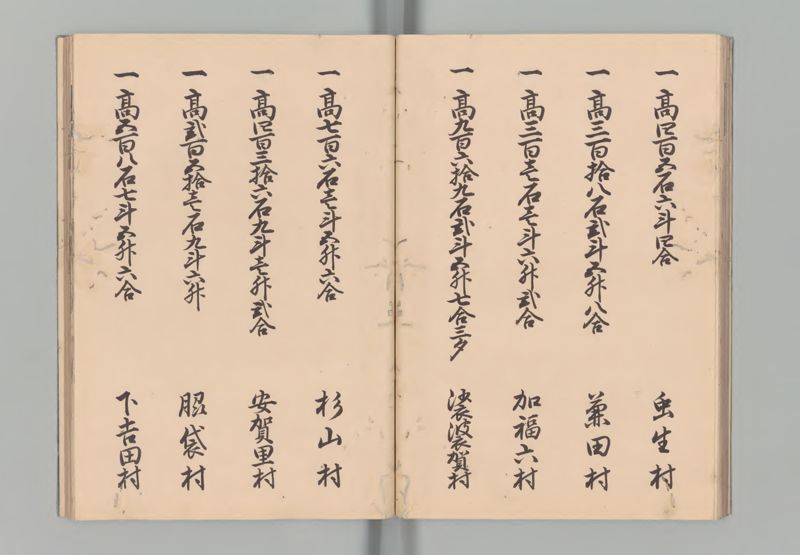 一 高四百五石六斗四合 虫生村
一 高三百拾八石弐斗五升八合 兼田村
一 高三百壱石壱斗六升弐合 加福六村
一 高九百六拾九石弐斗五升七合三夕 賀村
一 高七百六石壱斗五升六合 杉山村
一 高四百三拾六石九斗壱升弐合 安賀里村
一 高弐百五拾壱石九斗六升 脇袋村
一 高五百八石七斗五升六合 下吉田村